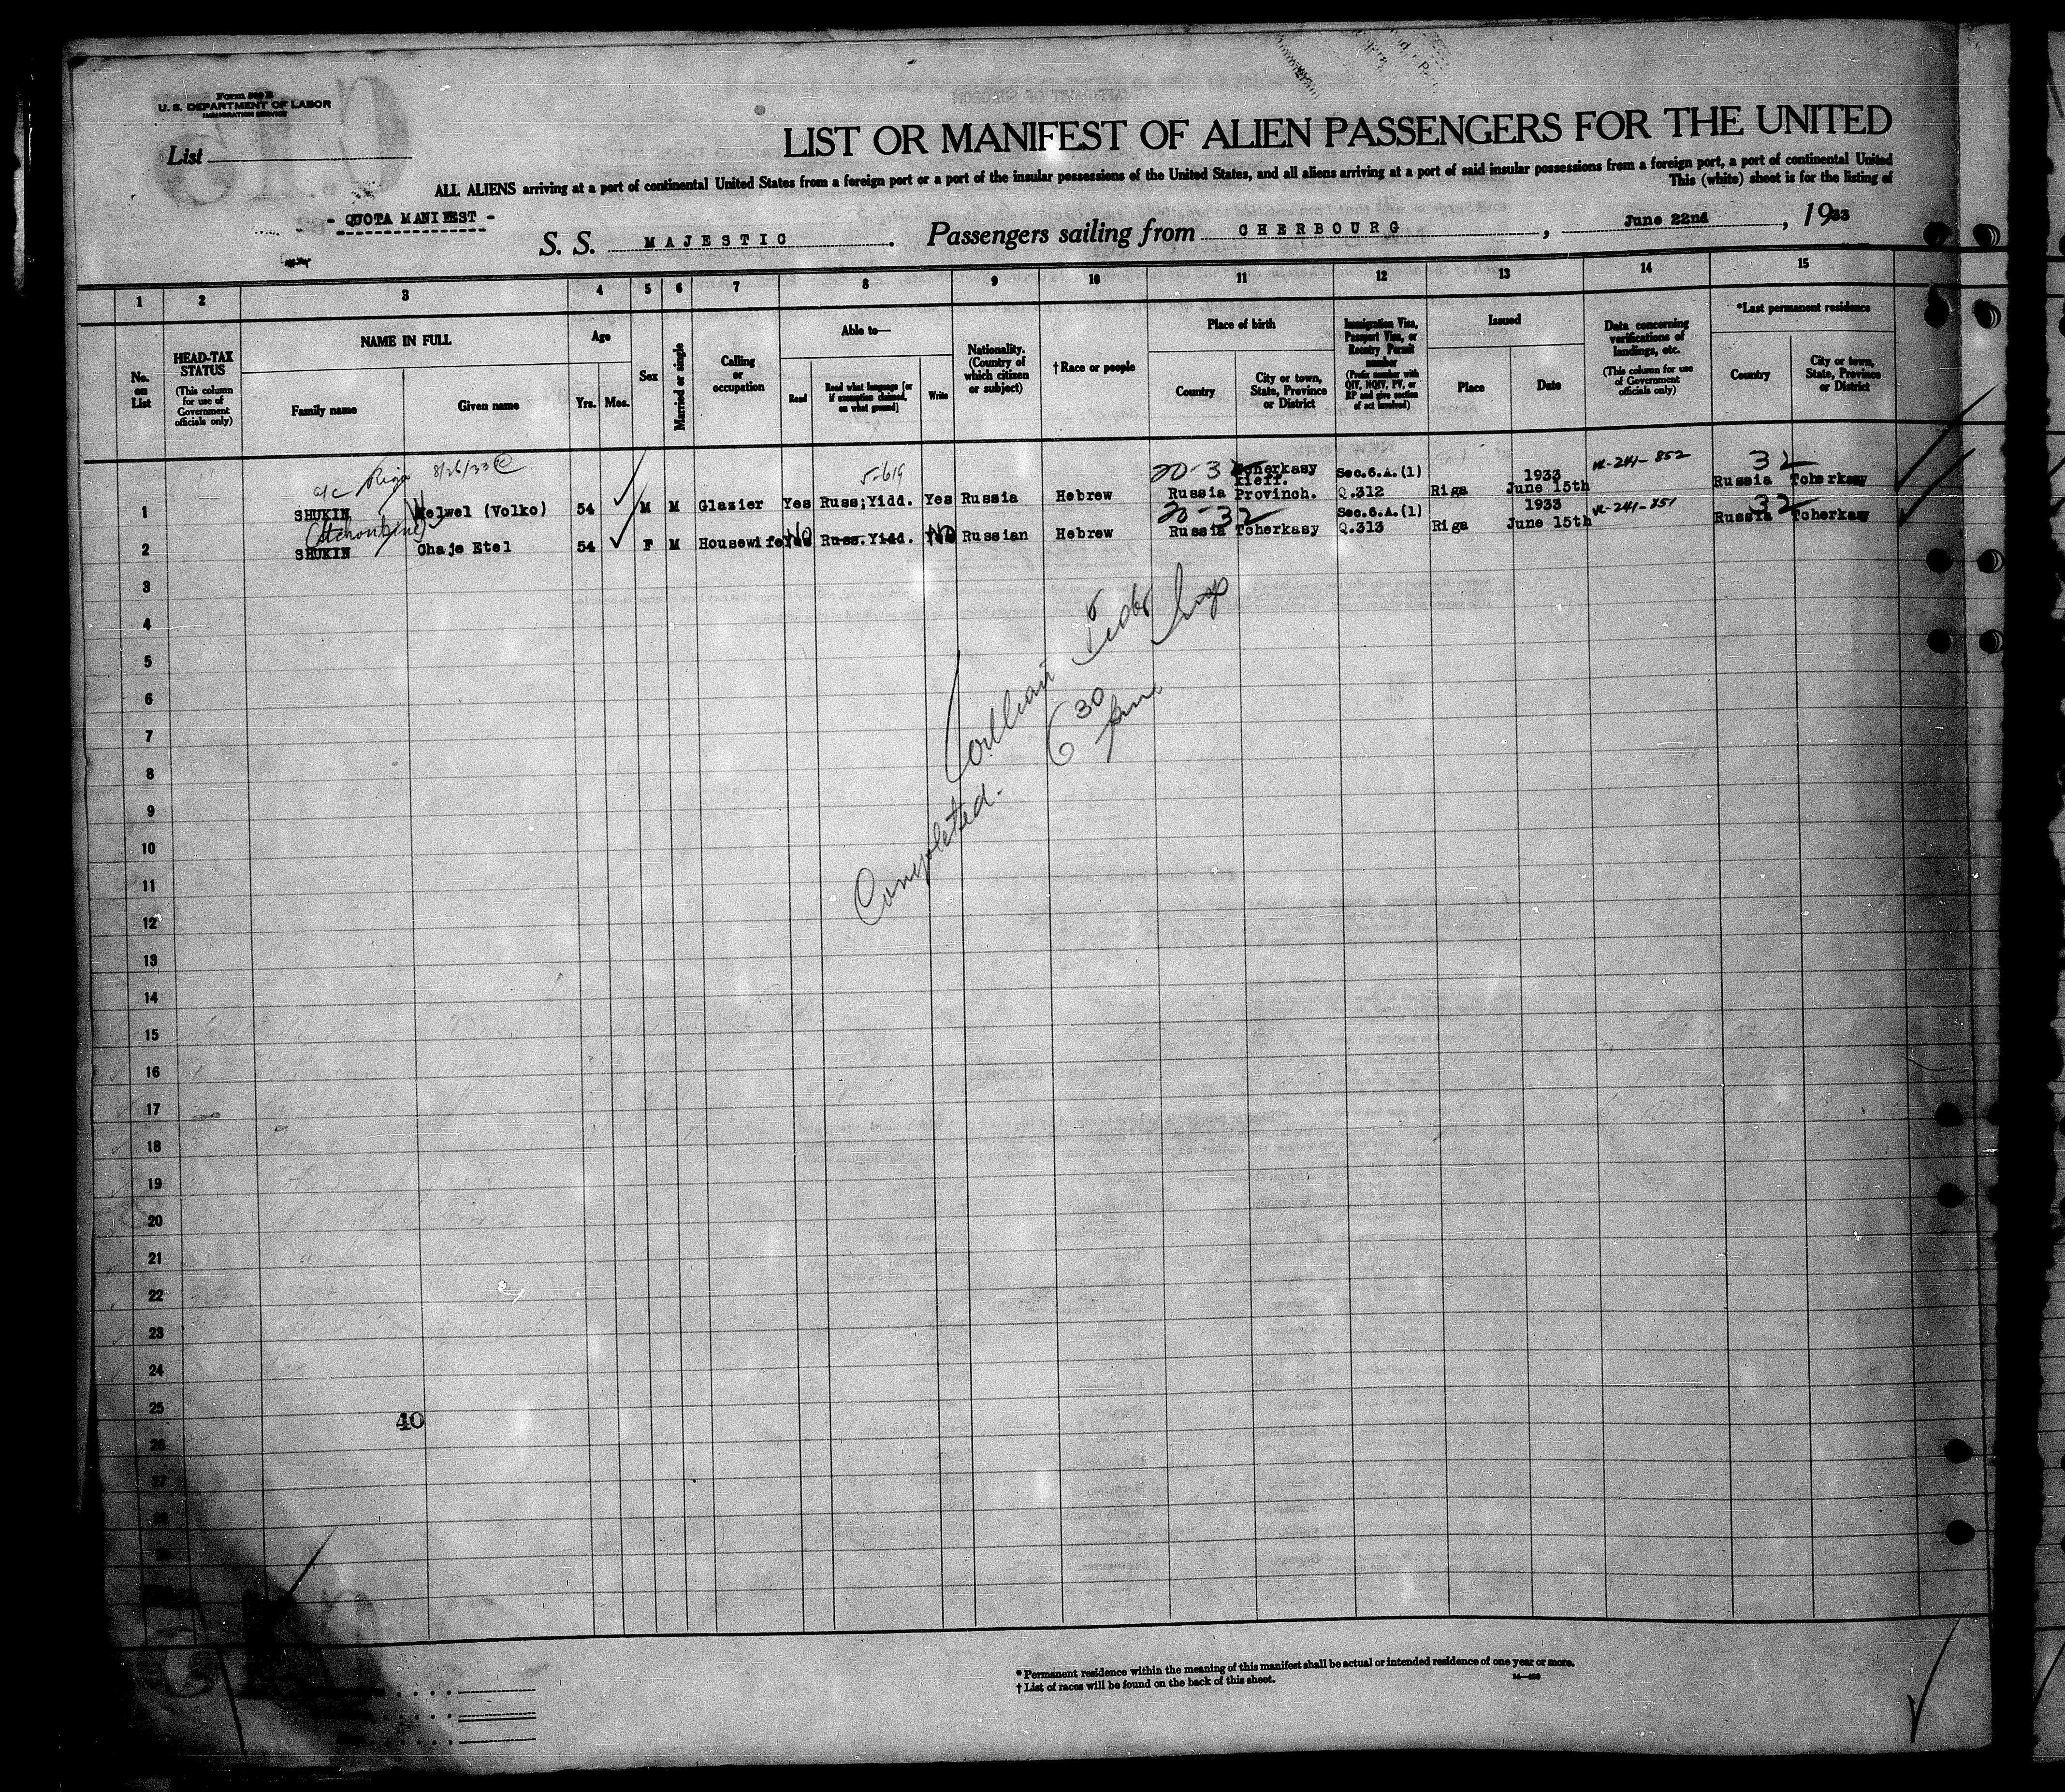 Form 500 B
U. S. DEPARTMENT OF LABOR
IMMIGRATION SERVICE
List
LIST OR MANIFEST OF ALIEN PASSENGERS FOR THE UNITED
ALL ALIENS arriving at a port of continental United States from a foreign port or a port of the insular possessions of the United States, and all aliens arriving at a port of said insular possessions from a foreign port, a port of continental United
This (white) sheet is for the listing of
- QUOTA MANIFEST -
S. S. MAJESTIC. Passengers sailing from CHERBOURG, June 22nd, 1933
1 2 3 4 5 6 7 8 9 10 11 12 13 14 15
No. on List
HEAD-TAX STATUS (This column for use of Government officials only)
NAME IN FULL
Family name
Given name
Age
Yrs. Mos.
Sex
Married or single
Calling or occupation
Able to—
Read
Read what language [or if exemption claimed, on what ground]
Write
Nationality. (Country of which citizen or subject)
† Race or people
Place of birth
Country
City or town, State, Province or District
Immigration Visa, Passport Visa, or Reentry Permit number (Prefix number with QIV, NQIV, PV, or RP and give section of act involved)
Issued
Place
Date
Data concerning verifications of landings, etc. (This column for use of Government officials only)
*Last permanent residence
Country
City or town, State, Province or District
a/c Riga 8/26/33 5-619 20-32 Tcherkasy Sec.6.A.(1) 1933 32
1 SHUKIN Welwel (Volko) 54 M M Glasier Yes Russ;Yidd. Yes Russia Hebrew Russia Kieff. Provinch. Q.312 Riga June 15th Russia Tcherkasy
20-32 Sec.6.A.(1) 1933 32
2 SHUKIN Chaje Etel 54 F M Housewife No Russ.Yidd. No Russian Hebrew Russia Tcherkasy Q.313 Riga June 15th Russia Tcherkasy
3
4
5
6
7
8
9
10
11
12
13
14
15
16
17
18
19
20
21
22
23
24
25
26
27
28
Completed.
6 30 pm
40
* Permanent residence within the meaning of this manifest shall be actual or intended residence of one year or more.
† List of races will be found on the back of this sheet.